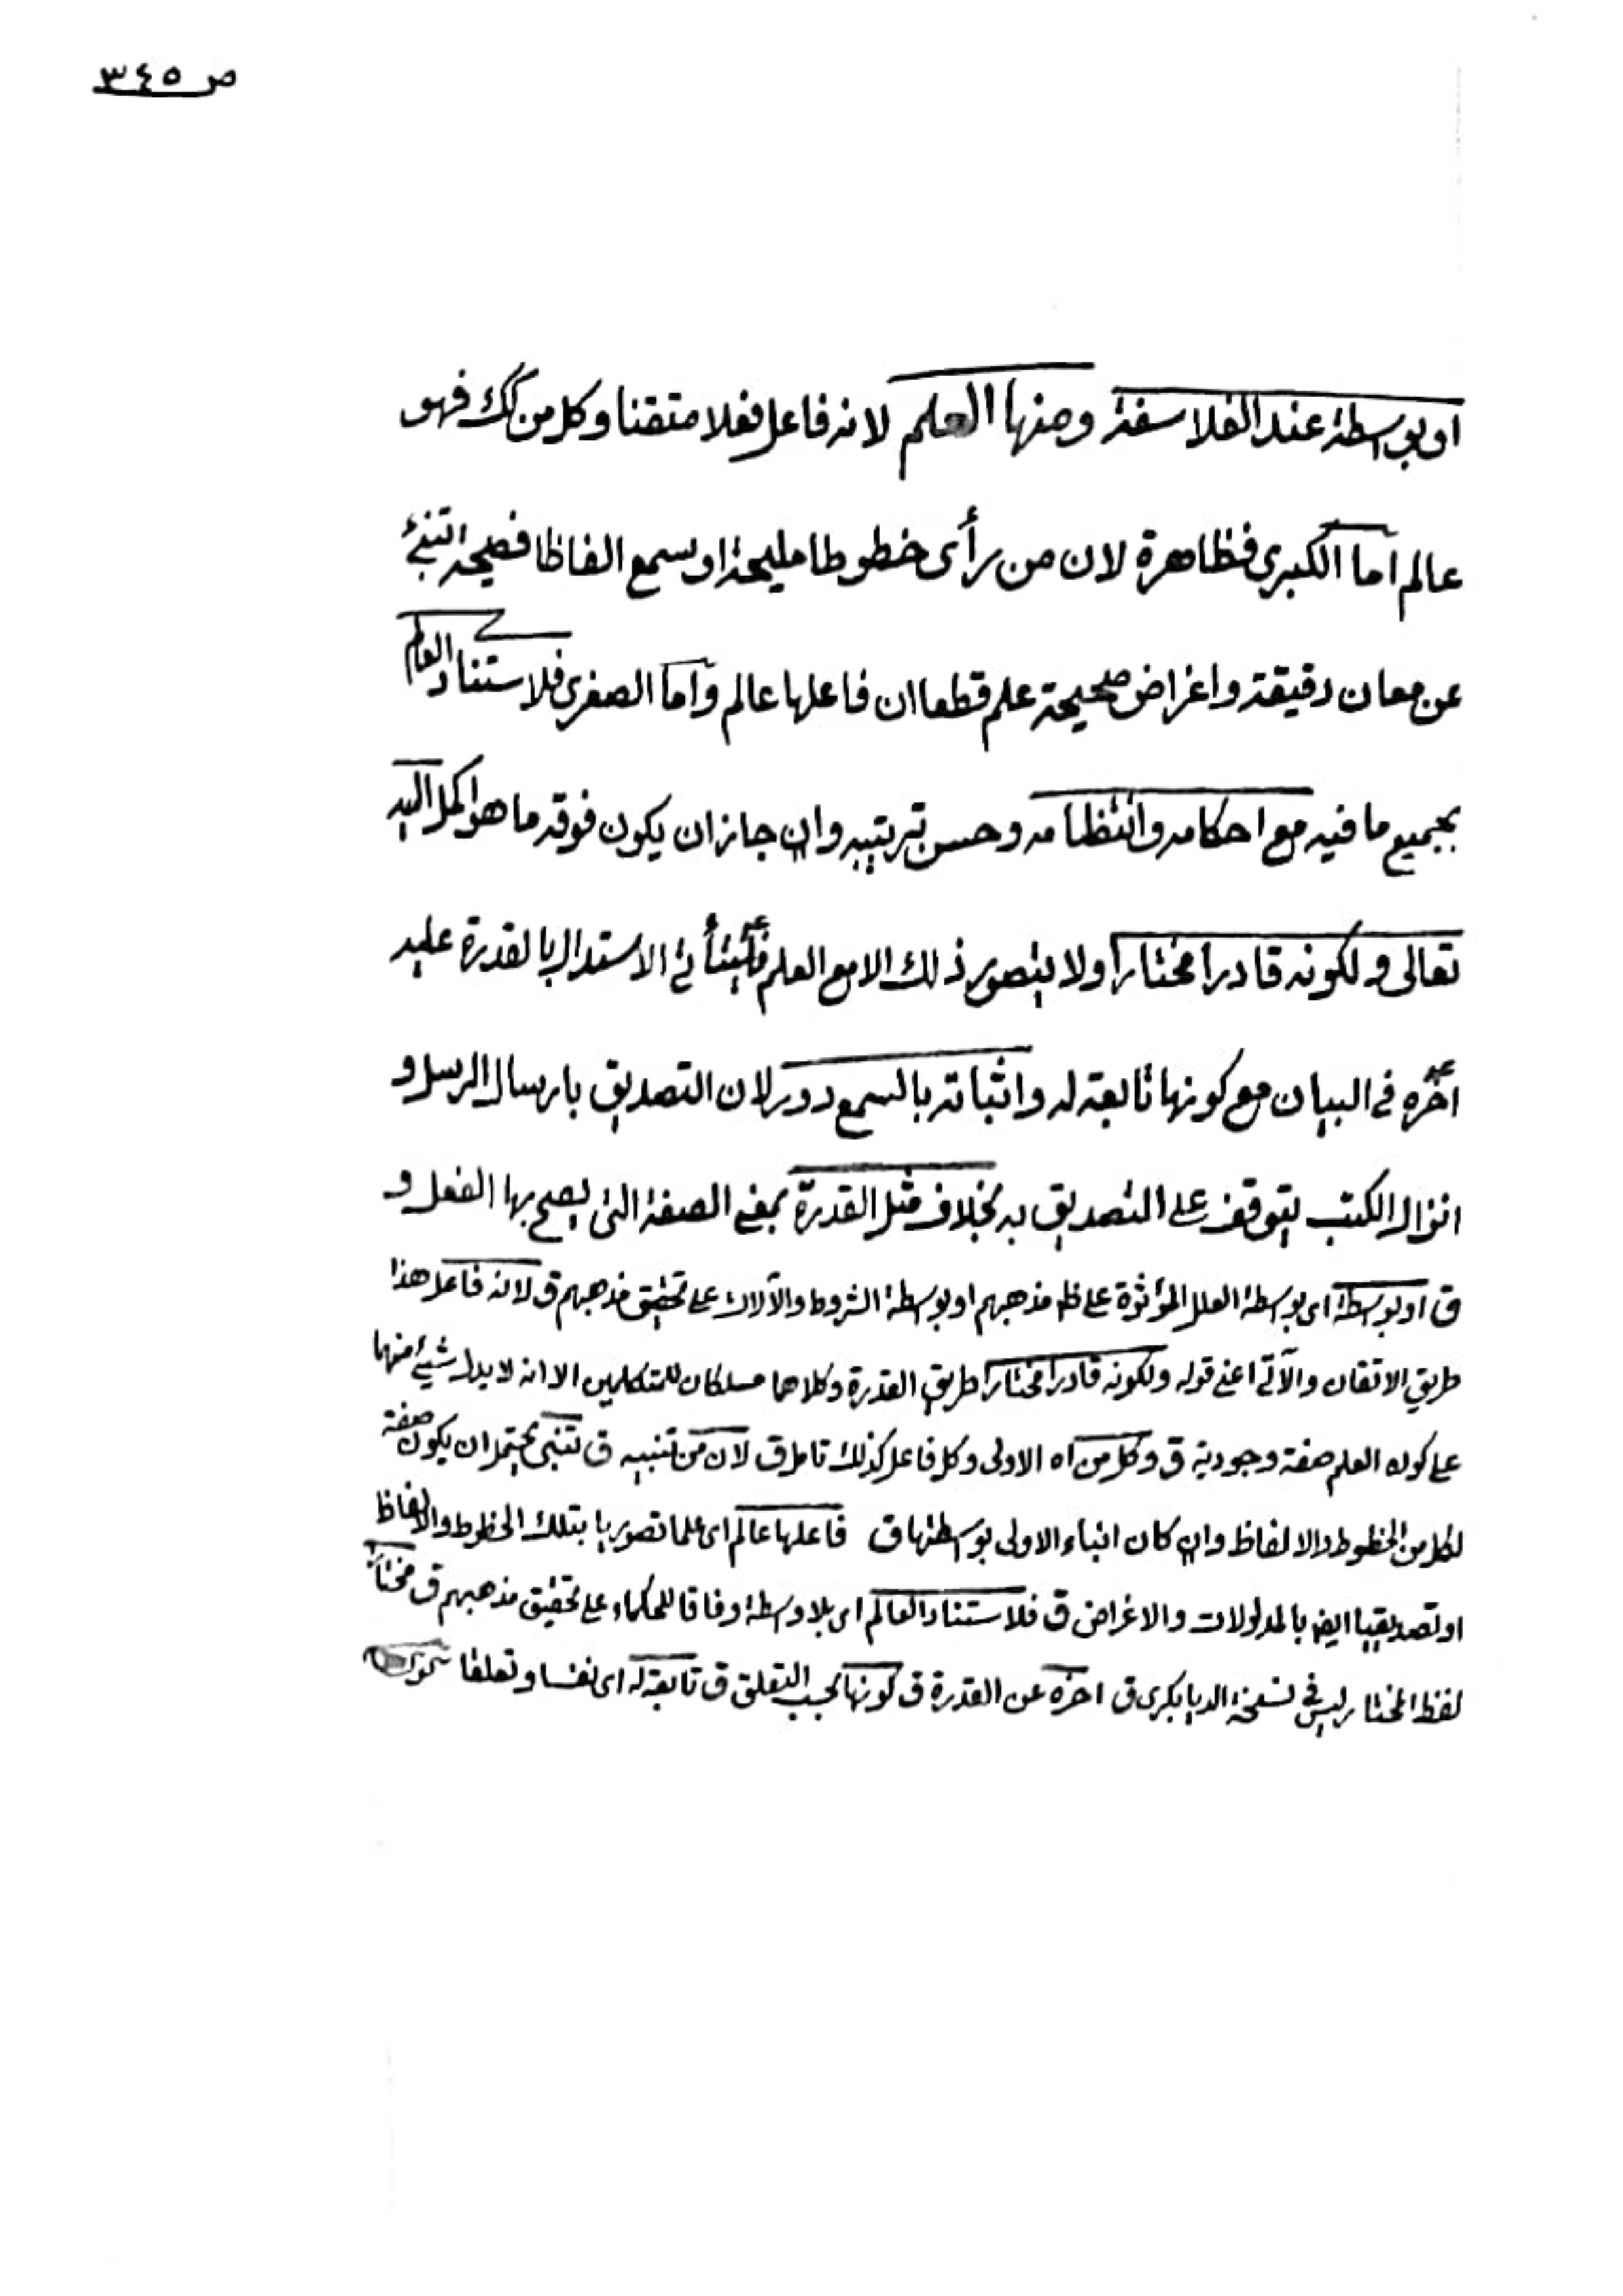 ص ٣٤٥
او بوسطة عند الفلاسفة ومنها العلم لانه فاعل فعلا متقنا وكل من كك فهو
عالم اما الكبرى فظاهرة لان من رأى خطوطا مليحة او سمع الفاظا فصيحة تنبئ
عن معان دقيقة واغراض صحيحة علم قطعا ان فاعلها عالم واما الصغرى فلاستناد العالم
بجميع ما فيه مع احكامه وانتظامه وحسن ترتيبه وان جاز ان يكون فوقه ما هو اكمل اليه
تعالى ولكونه قادرا مختارا ولا يتصور ذلك الا مع العلم فيتأتى الاستدلال بالقدرة عليه
اخره في البيان مع كونها تابعة له واثباته بالسمع دور لان التصديق بارسال الرسل و
انزال الكتب يتوقف على التصديق به بخلاف مثل القدرة بمعنى الصفة التى يصح بها الفعل و
ق او بوسطة اى بوسطة العلل المؤثرة على ظ مذهبهم او بوسطة الشروط والآلات على تحقيق مذهبهم ق لانه فاعل هذا
طريق الاتقان والآتى اعنى قوله ولكونه قادرا مختارا طريق القدرة وكلاهما مسلكان للمتكلمين الا انه لا يدل شيئ منهما
على كون العلم صفة وجودية ق وكل من اه الاولى وكل فاعل كذلك تامل ق لان من تنبيه ق تنبى يحتمل ان يكون صفة
لكل من الخطوط والالفاظ وان كان انباء الاولى بوسطتها ق فاعلها عالم اى علما تصوريا بتلك الخطوط والالفاظ
او تصديقيا ايضا بالمدلولات والاغراض ق فلاستناد العالم اى بلا وسطة وفاقا للحكماء على تحقيق مذهبهم ق مختارا
لفظ المختار ليس في نسخة الديابكرى ق اخره عن القدرة ق كونها بحسب التعلق ق تابعة له اى نفسا وتعلقا